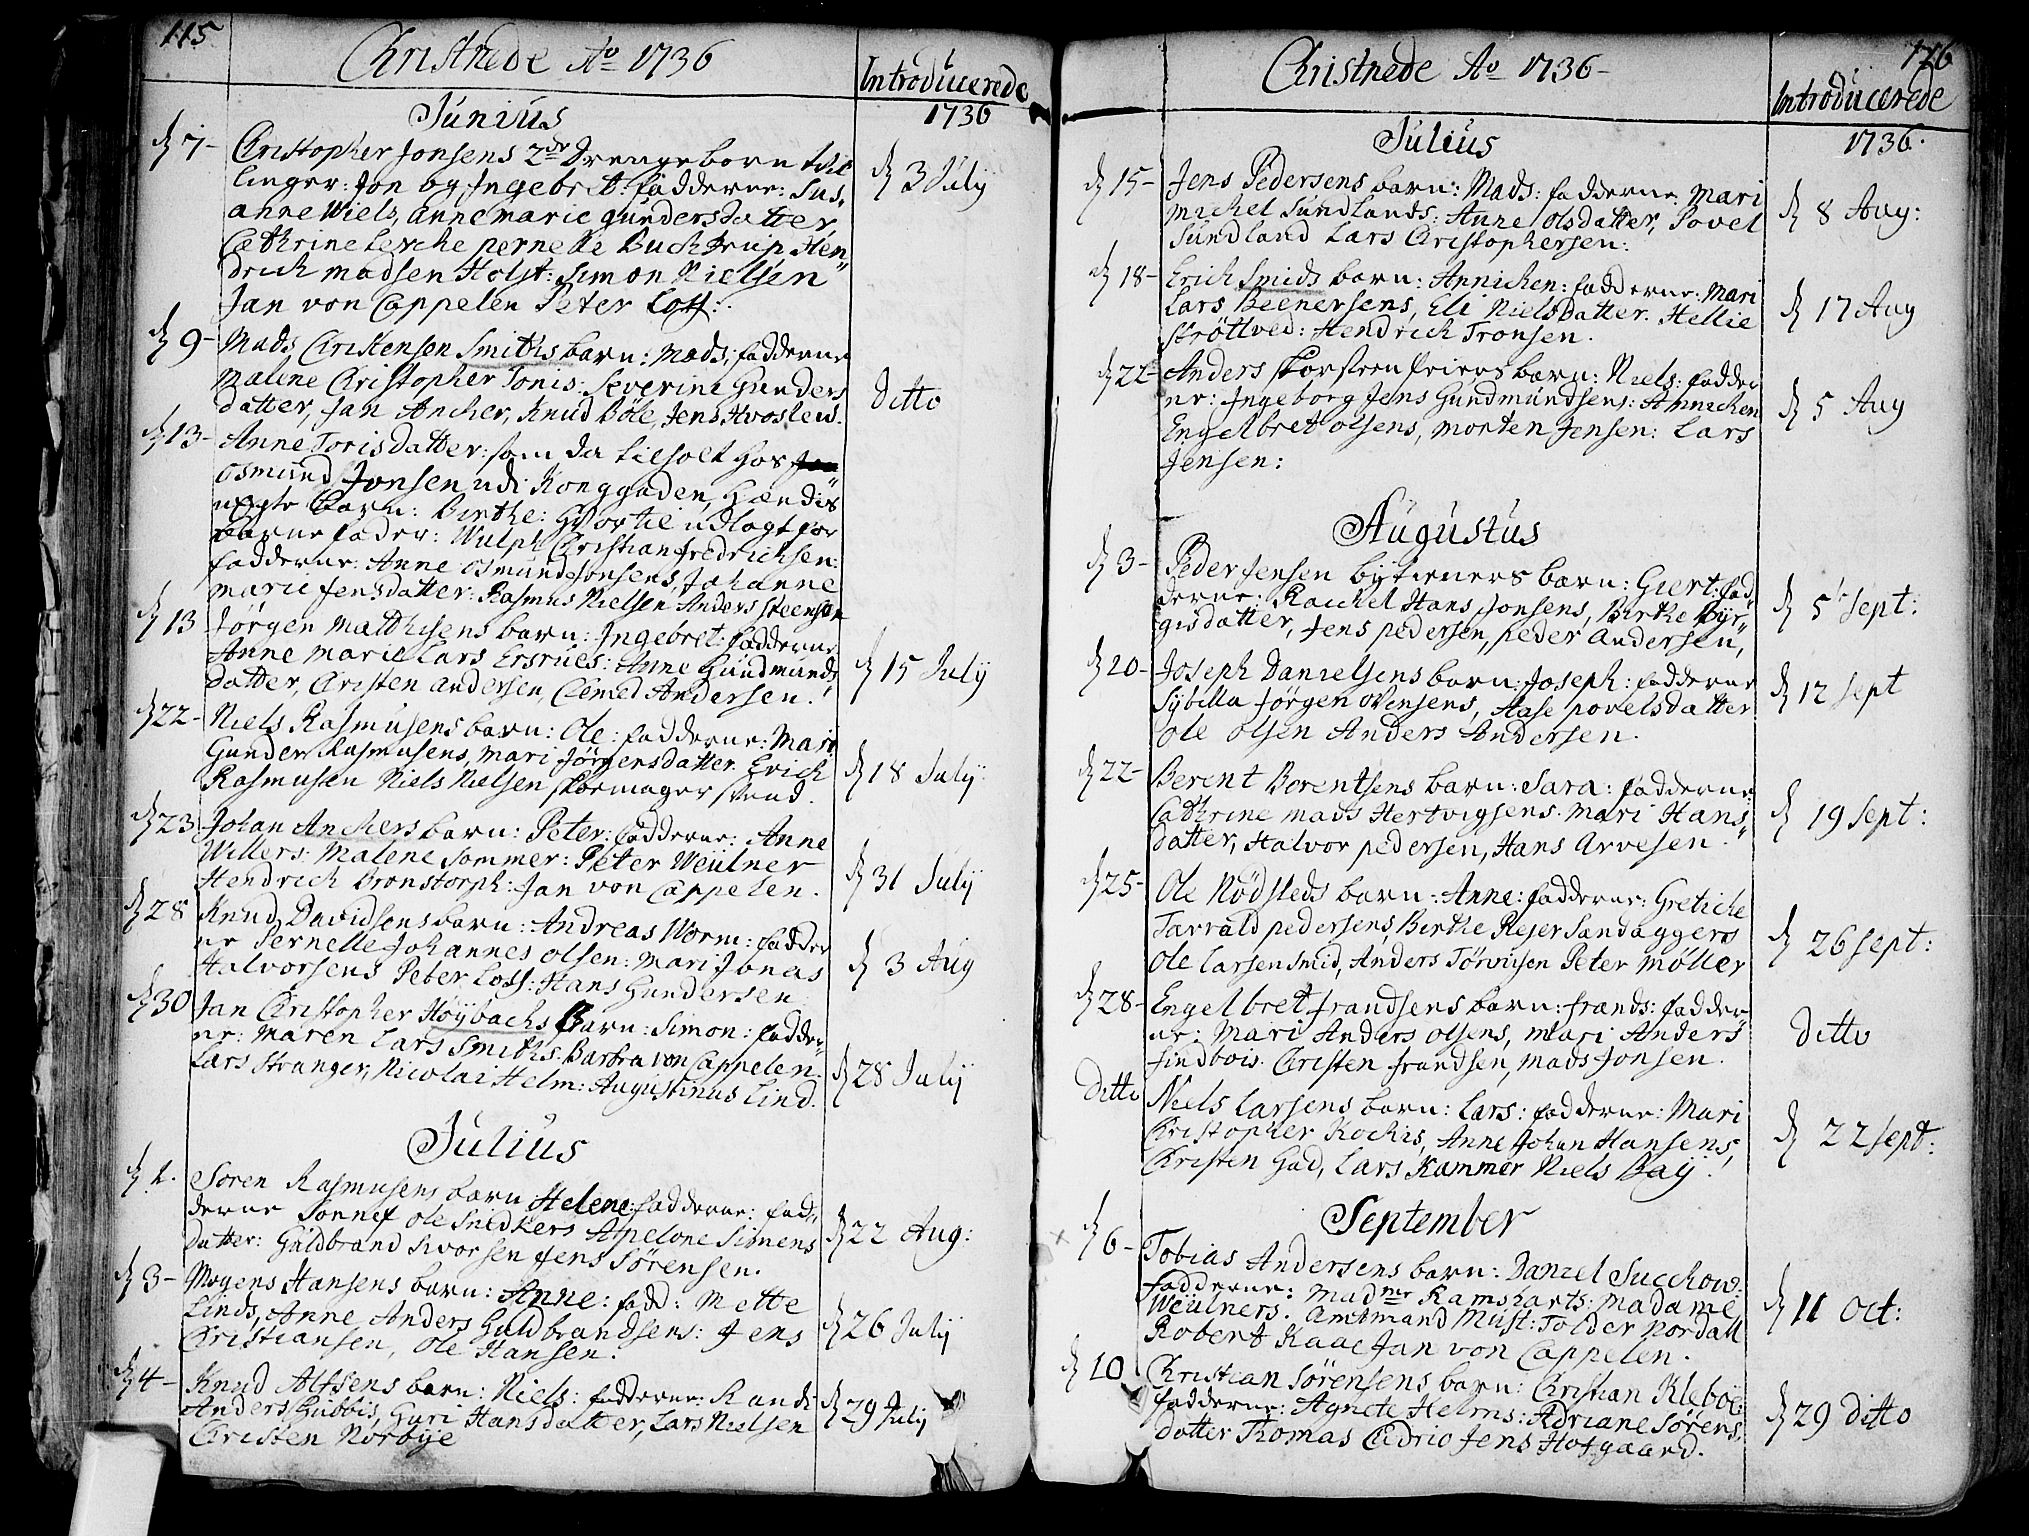 115
Christnede Ao 1736
Introducerede
1736
Junius
d 7- Christopher Jonsens 2de Drengebørn tvil
linger: Jon og Ingebret: fadderne: Sus„
anne Wiels, Anne marie gundersdatter
Cathrine Lerche pernelle Buchtrup Hen„
drich madsen Holst: Simon Nielsen
Jan von Cappelen Peter Loss:
d 3 July
d 9- Mads Christensen Smiths barn: Mads: fadderne
Malene Christopher Tonis: Severine Gunders
datter, Jan Ancher, Knud Böle, Jens Hvoslew.
Ditto
d 13- Anne Torisdatter: som da tilholt hos
Osmund Jonsen udi Konggaden, Hændis
uægte Barn: Birthe: Hvortil udlagt for
Barnefader: Wulph Christian Fredrichsen:
fadderne: Anne Osmund Jonsens, Johanne
marie Jensdatter: Rasmus Nielsen Anders Steensen
d 13 Jørgen Matthisens barn: Ingebret: fadderne
Anne Marie Lars Ersrues: Anne Gundmunds
datter, Christen Andersen, Clemed Andersen.
d 15 July
d 22- Niels Rasmusens barn: Ole: fadderne: Mari
Gunder Rasmusens, Mari Jörgensdatter Erich
Rasmusen Niels Nielsen skormager svend.
d 18 July
d 23 Johan Anchers barn: Peter: fadderne: Anne
Willers: Malene Sommer: Peter Weulner
Hendrich Bronstorph: Jan von Cappelen.
d 31 July
d 28 Knud Davidsens barn: Andreas Worm: fadder
ne Pernelle Johannes Olsen: Mari Jonas
Halvorsens Peter Loss: Hans Gundersen
d 3 Aug
d 30 Jan Christopher Höybachs Barn: Simon: fadder„
ne: Maren Lars Smiths: Barbra von Cappelen.
Lars Stranger, Nicolai Helm: Augustinus Lind.
d 28 July
Julius
d 2. Sören Rasmusens barn Helene: fadderne: fad„
derne Sonnef Ole Snedkers Apelone Simens
datter: Guldbrand Sivorsen Jens Sörensen.
d 22 Aug:
d 3- Mogens Hansens barn: Anne: fadd: Mette
Linds, Anne Anders Guldbrandsens: Jens
Christiansen, Ole Hansen.
d 26 July
d 4- Knud Alfsens barn: Niels: fadderne: Randi
Anders Gubbis, Guri Hansdatter, Lars Nielsen
Christen Norbye
d 29 July
116
Christnede Ao 1736-
Introducerede
1736.
Julius
d 15- Jens Pedersens barn: Mads: fadderne, Mari
Michel Sundlands: Anne Olsdatter, Povel
Sundland Lars Christophersen:
d 8 Aug:
d 18- Erich Smids barn: Annichen: fadderne: Mari
Lars Beenersens, Eli Nielsdatter. Hellie
Ströttved: Hendrich Tronsen.
d 17 Aug
d 22- Anders skorsteenfeiers barn: Niels: fadder
ne: Ingeborg Jens Gundmundsens: Annichen
Engelbret Olsens, Morten Jensen: Lars
Jensen:
d 5 Aug
Augustus
d 3- Peder Jensen bytieners barn: Giert: fad„
derne: Rachel Hans Jonsens, Birthe Byr„
gisdatter, Jens pedersen, peder Andersen,
d 5 Sept:
d 20- Joseph Danielsens barn: Joseph: fadderne
Sybilla Jörgen Ovensens, Aase povelsdatter
Ole Olsen Anders Andersen.
d 12 Sept
d 22- Berent Borentsens barn: Sara: fadderne
Cathrine Mads Hertvigsens. Mari Hans
datter, Halvor pedersen, Hans Arvesen.
d 19 Sept:
d 25- Ole Nödsleds barn: Anne: fadderne: Gretiche
Tarrald pedersens, Birthe Rejer Sandaggers
Ole Larsen Smid, Anders Törrisen Peter Møller
d 26 Sept:
d 28- Engelbret Frandsens barn: Frands: fadder
ne: Mari Anders Olsens, Mari Anders
Findbois. Christen Frandsen, Mads Jonsen.
Ditto
Ditto Niels Larsens barn: Lars: fadderne: Mari
Christopher Kochis, Anne Johan Hansens,
Christen Gad, Lars Kammer Niels Bay.
d 22 Sept:
September
d 6- Tobias Andersens barn: Daniel Suckow:
Fadderne: Madme Ramsharts: Madame
Weulners. Amtmand Must: Tolder Nordall
Robert Kaae Jan von Cappelen.
d 11 Oct:
d 10 Christian Sörensens barn: Christian Kleböe:
fadderne: Agnete Helms: Adriane Sörens„
datter Thomas Cudrio Jens Hofgaard.
d 29 Ditto